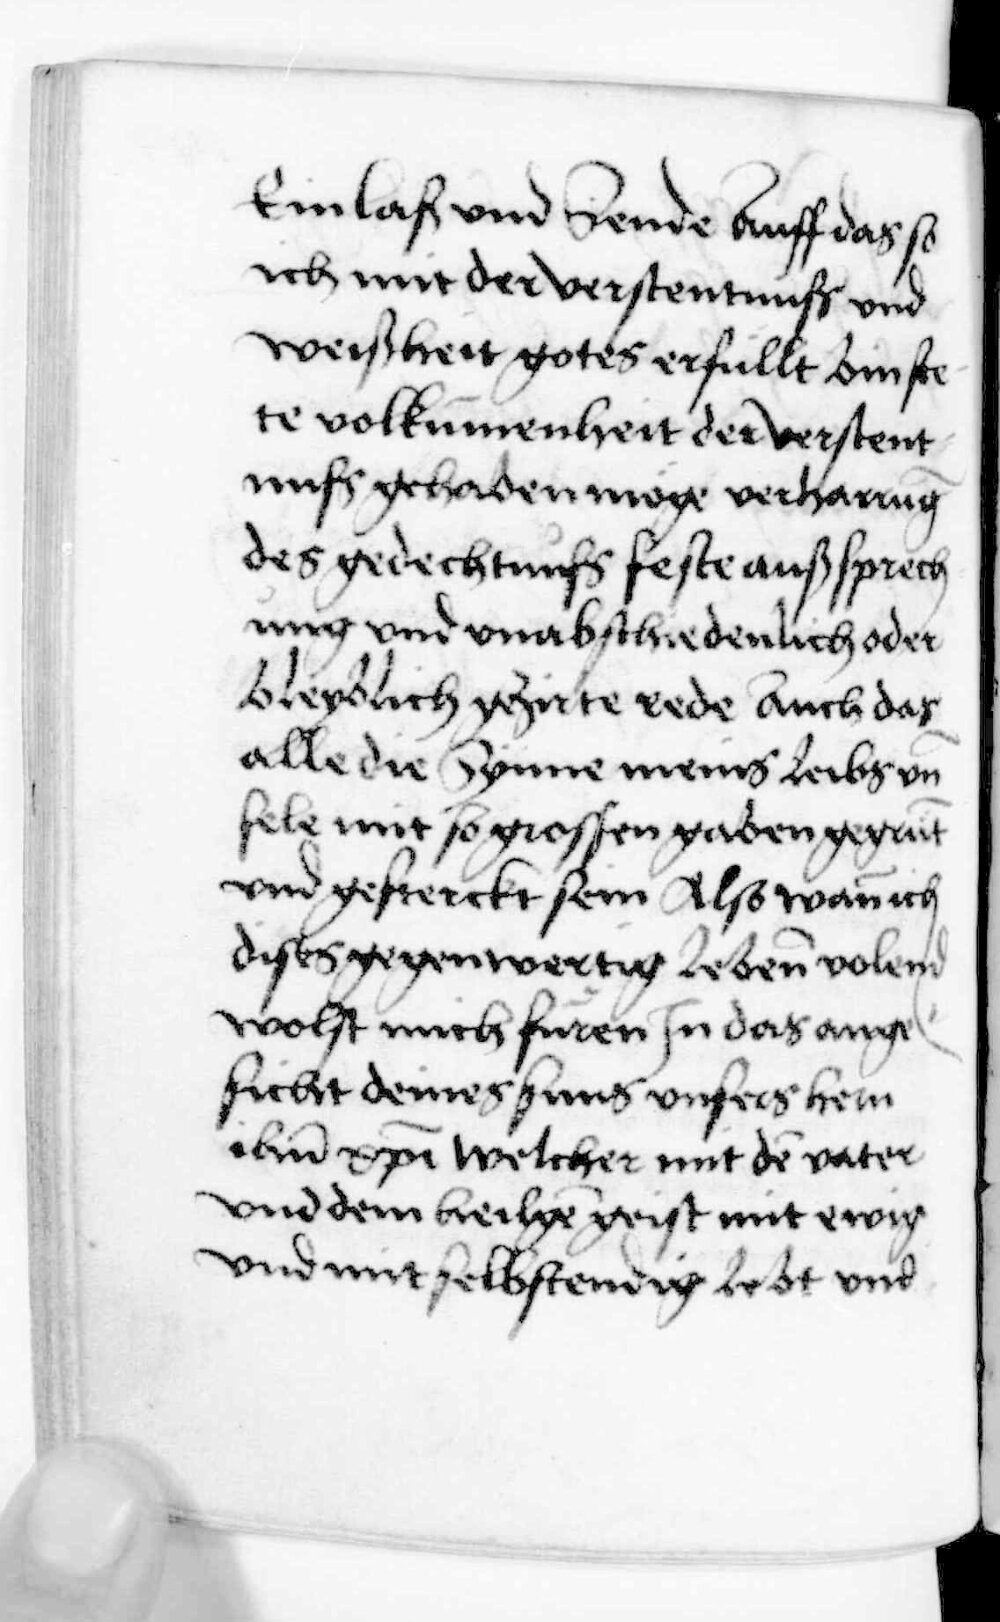 Einlass vnd Sende Auff das so
ich mit der verstentnuss vnd
weißheit gotes erfullt bin ste-
te volkūmenheit der verstent-
nuss gehaben möge verharrūg
des gedechtnuss feste außsprech-
ung vnd vnabschiedenlich oder
bleyblich gezirte rede Auch das
alle die Synne meins leibs vn̄
sele mit so grossen gaben gegrūt
vnd gesterckt sein Also wan̄ ich
dises gegenwertig leben̄ volend
wolst mich füren In das ange
sicht deines suns vnsers hern
ihū xpī Welcher mit dē vater
vnd dem heilgē geist mit ewig
vnd mit selbstendig lebt vnd